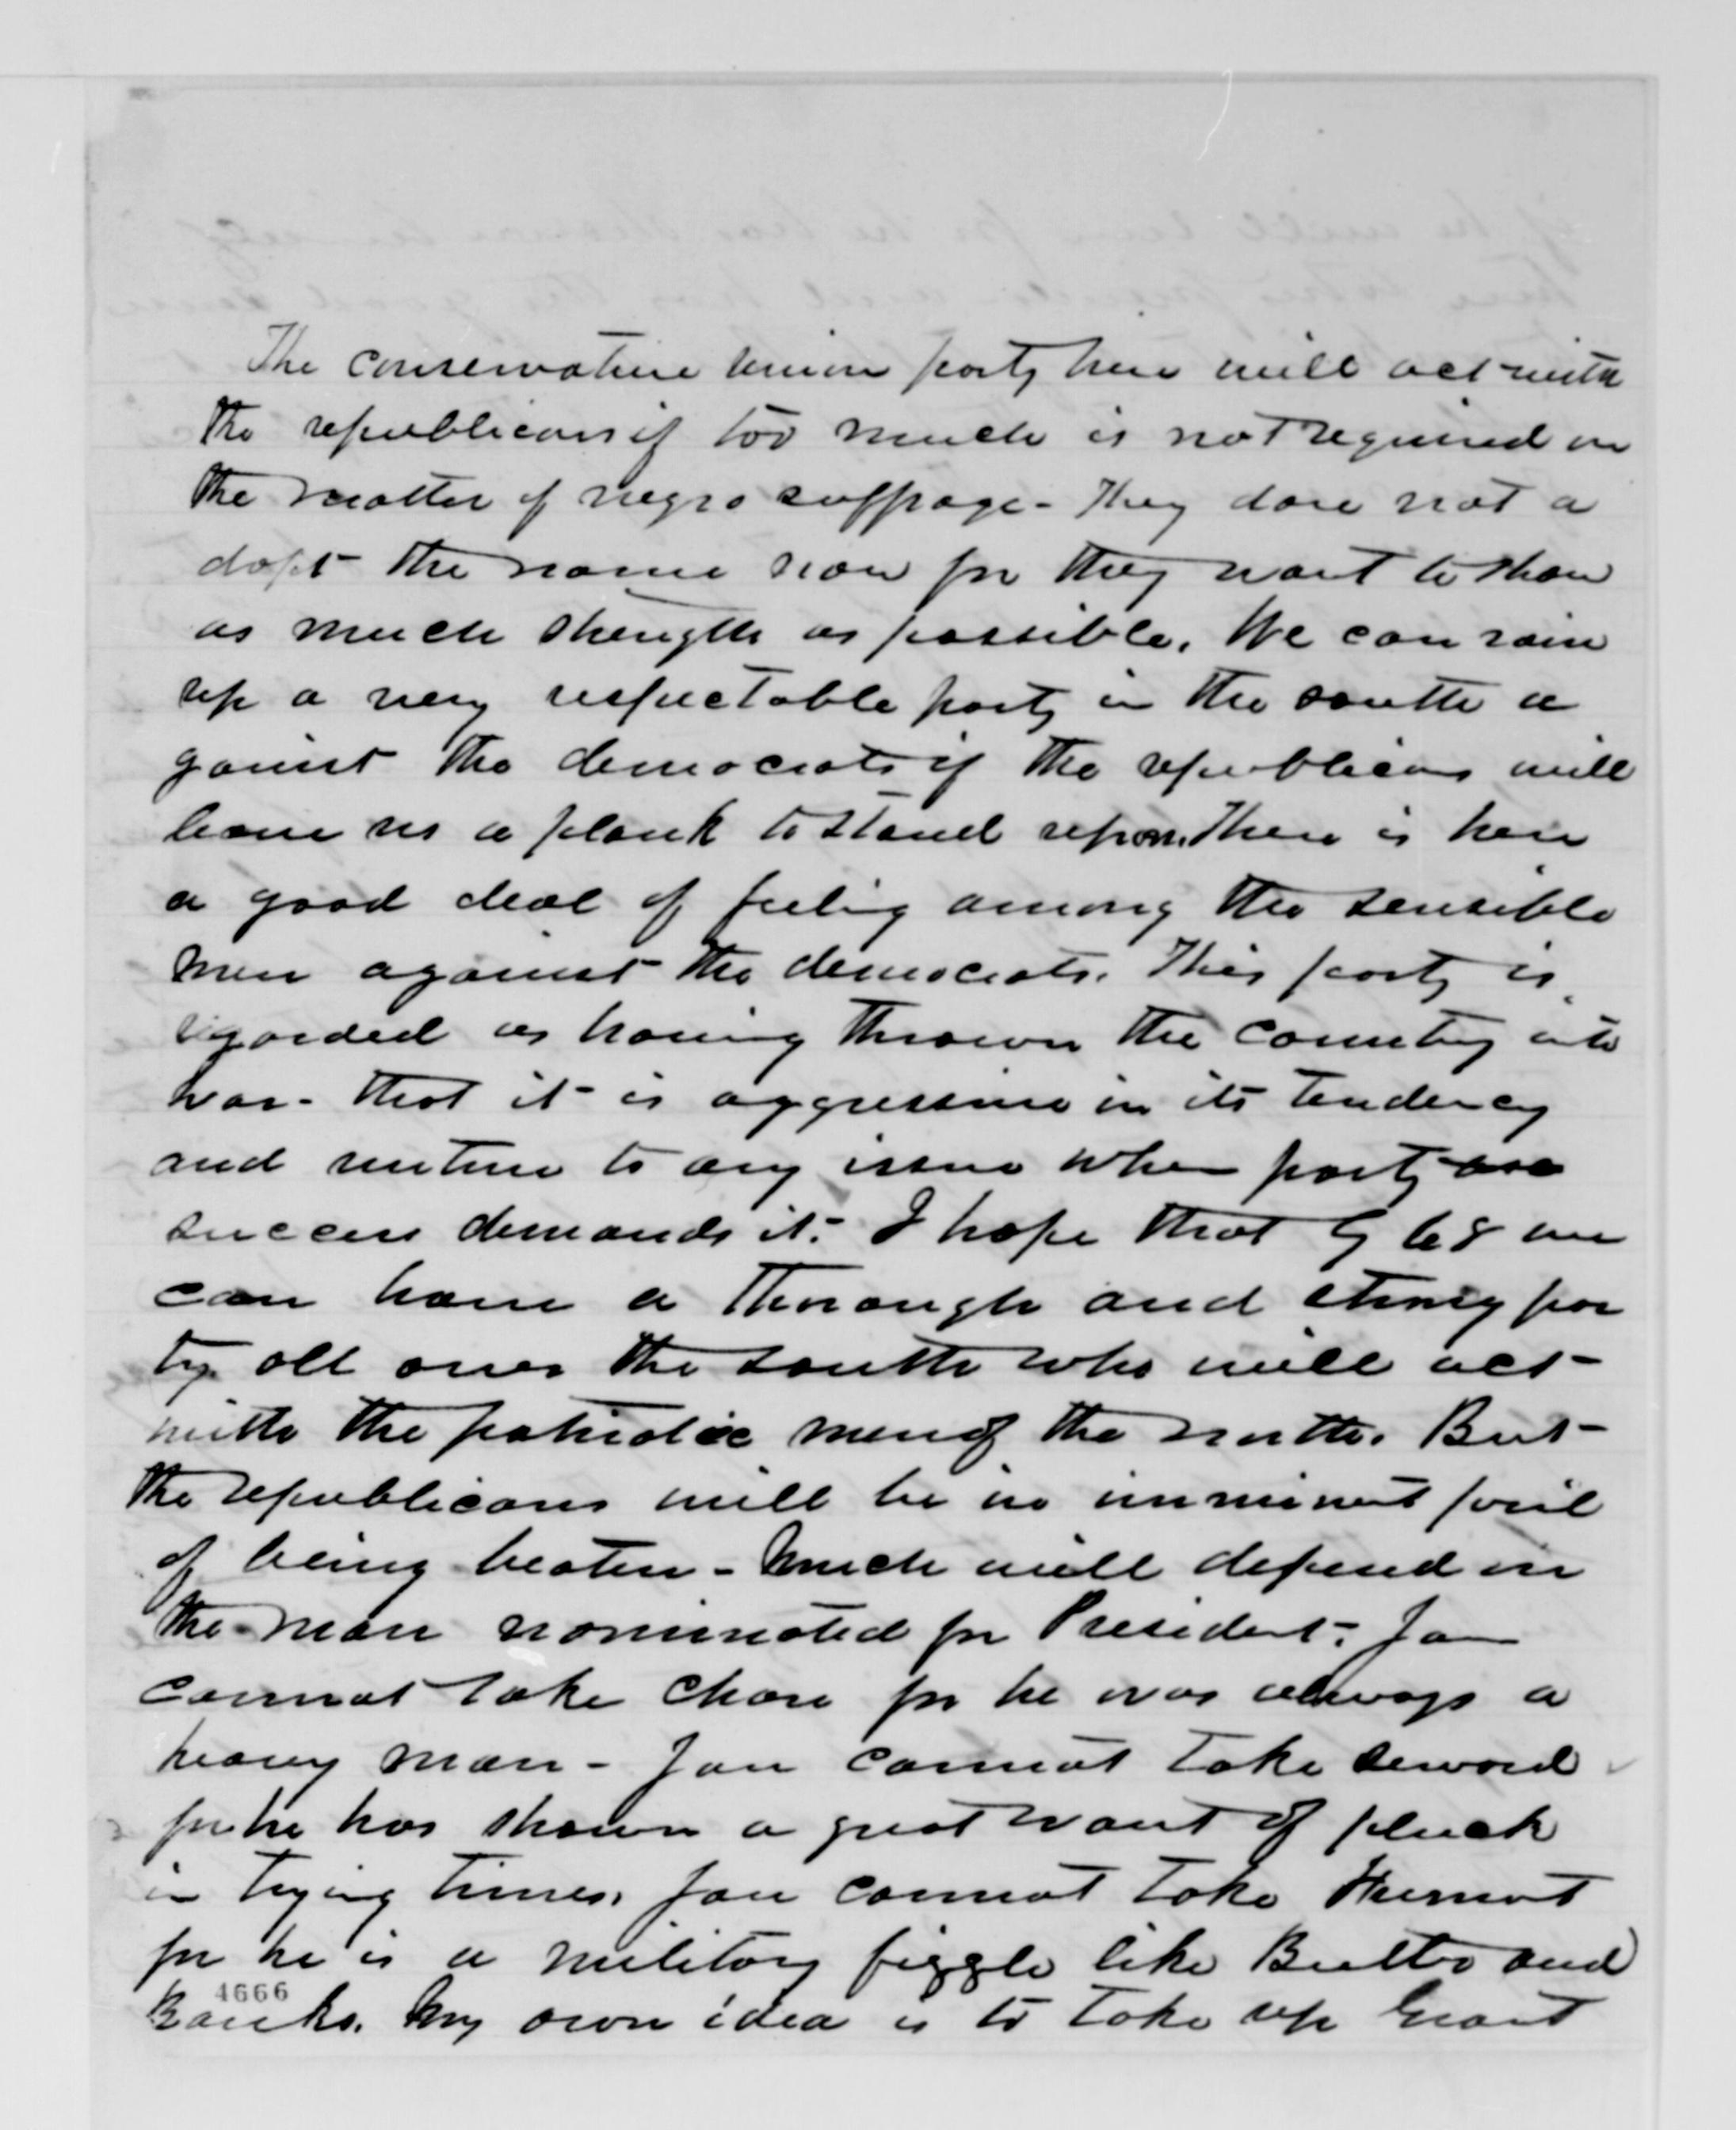 The conservative union party here will act with
the republicans if too much is not required on
the matter of negro suffrage - They dare not a
dopt the name now for they want to show
as much strength as possible. We can raise
up a very respectable party in the south a
gainst the democrats if the republicans will
leave us a plank to stand upon. There is here
a good deal of feeling among the sensible
men against the democrats. This party is
regarded as having thrown the country into
war - that it is aggressive in its tendency
and venture to any issue when party
success demands it. I hope that by 68 we
can have a thorough and strong par
ty all over the south who will act
with the patriotic men of the north. But
the republicans will be in imminent peril
of being beaten - Much will depend on
the man nominated for President. You
cannot take Chase for he was always a
heavy man - You cannot take Seward
for he has shown a great want of pluck
in trying times. You cannot take Fremont
for he is a military fizzle like Butler and
Banks. My own idea is to take up Grant
4666